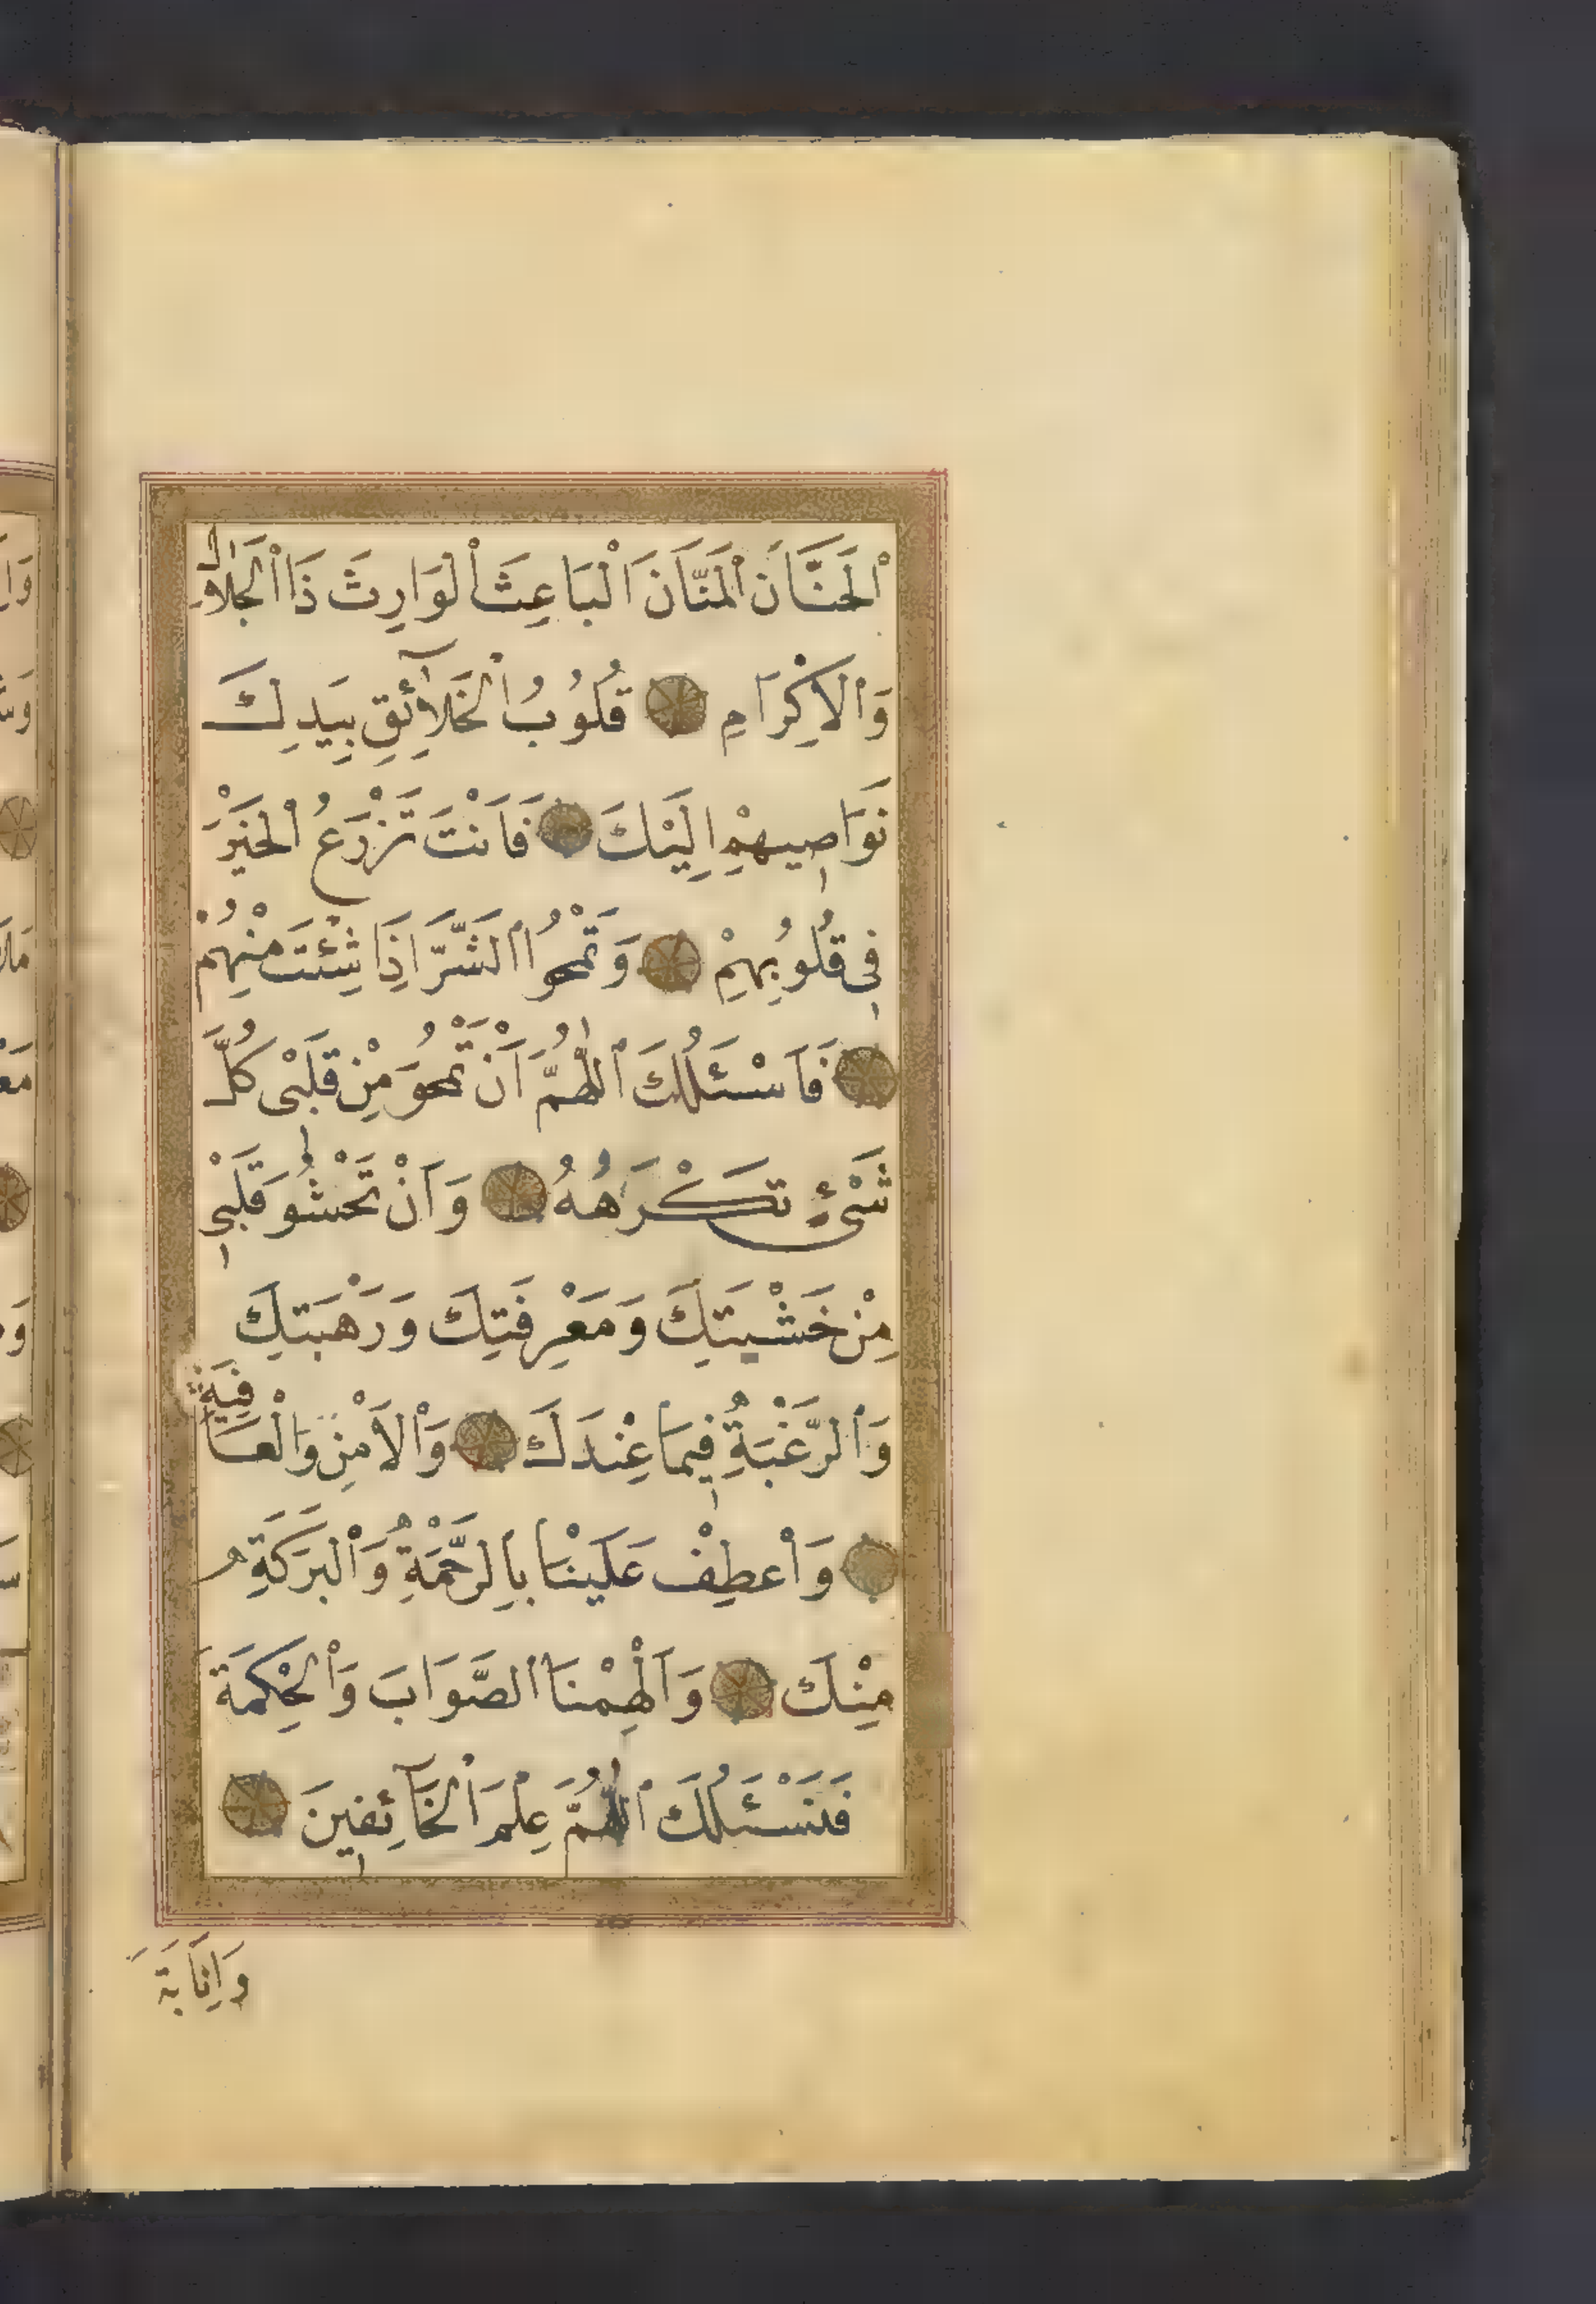 اَلْحَنَّانَ الْمَنَّانَ الْبَاعِثَ الْوَارِثَ ذَا الْجَلَالِ
وَالْاِكْرَامِ قُلُوبُ الْخَلَآئِقِ بِيَدِكَ
نَوَاصِيهِمْ اِلَيْكَ فَاَنْتَ تَزْرَعُ الْخَيْرَ
فِي قُلُوبِهِمْ وَتَمْحُوا الشَّرَّ اِذَا شِئْتَ مِنْهُمْ
فَاَسْئَلُكَ اللّٰهُمَّ اَنْ تَمْحُوَ مِنْ قَلْبِى كُلَّ
شَىْءٍ تَكْرَهُهُ وَاَنْ تَحْشُوَ قَلْبِى
مِنْ خَشْيَتِكَ وَمَعْرِفَتِكَ وَرَهْبَتِكَ
وَالرَّغْبَةِ فِيمَا عِنْدَكَ وَالْاَمْنِ وَالْعَافِيَةِ
وَاعْطِفْ عَلَيْنَا بِالرَّحْمَةِ وَالْبَرَكَةِ
مِنْكَ وَاَلْهِمْنَا الصَّوَابَ وَالْحِكْمَةَ
فَنَسْئَلُكَ اللّٰهُمَّ عِلْمَ الْخَآئِفِينَ
وَاِنَابَةَ